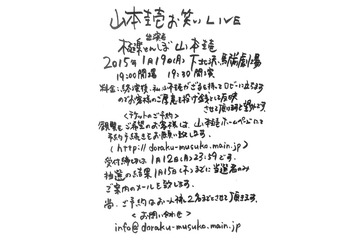 山本圭壱お笑いLIVE
出演者
極楽とんぼ 山本圭壱
2015年1月19日(月) 下北沢駅前劇場
19:00開場 19:30開演
料金:終演後、私山本が ざるを持ってロビーに立ちます
のでお客様のご厚意を投げ銭として頂戴
させて頂ければと望みます。
<チケットのご予約>
観覧をご希望のお客様は、山本圭壱ホームページにて
予約手続きをお願い致します。
(http://doraku-musuko.main.jp)
受付締切は1月12日(月)23:59です。
抽選の結果1月15日(木)までに当選者のみ
ご案内のメールを致します。
尚、ご予約はお一人様2名までとさせて頂きます。
<お問い合わせ>
info@doraku-musuko.main.jp